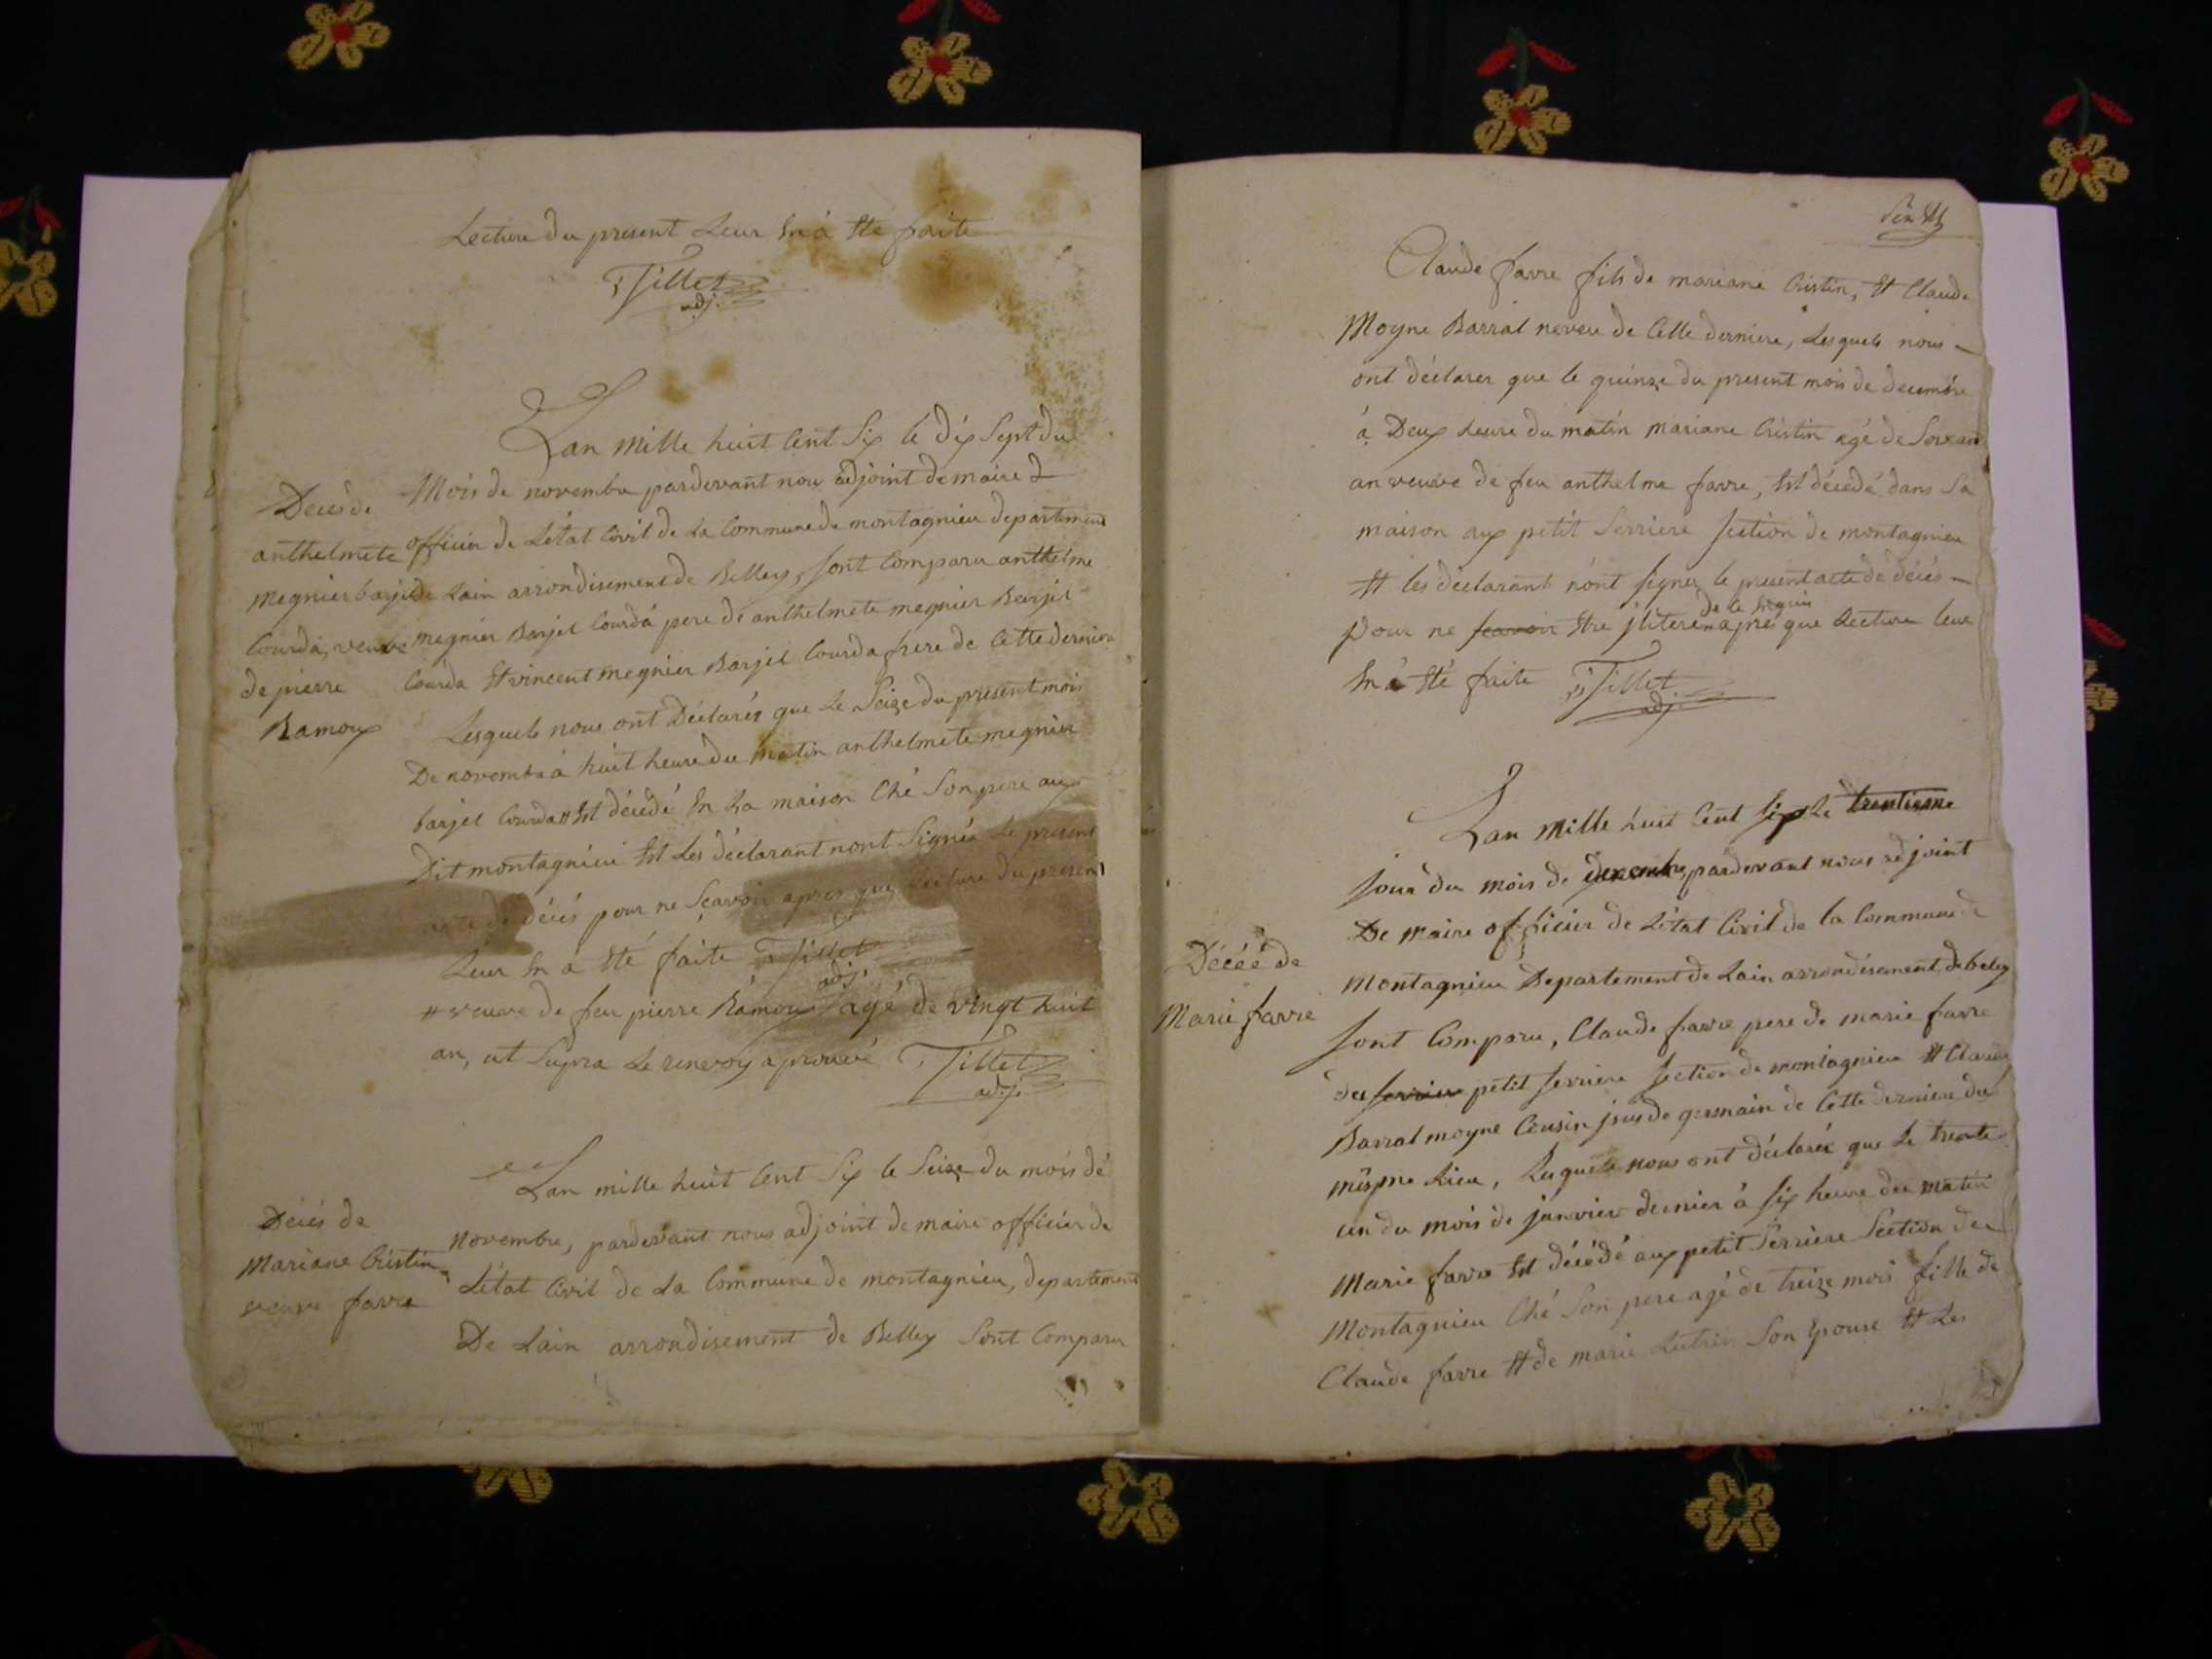 Lecture du present Leur En á Eté faite
Tillet
adj.
Lan mille huit Cent Six le dix Sept du
Mois de novembre pardevant nou adjoint de maire &
officier de Létat Civil de La Commune de montagnieu departement
de Lain arrondisement de Belley, Sont Comparu anthelme
megnier Barjel Courdá pere de anthelmete megnier Barjel
Courda Et vincent megnier Barjel Courda frere de Cette derniere
Lesquels nous ont Déclarés que Le Seize du present mois
De novembre á huit heure du matin anthelmete megnier
barjel Courda # Est décédé En La maison Ché Son pere aux
Dit montagnieu Et Les déclarant nont Signér Le present
acte de décés pour ne Sçavoir apres que Lecture du present
Leur En a Eté faite Tillet
adj.
# veuve de feu pierre Ramoux agé de vingt huit
an, ut Supra Le renvoy aprouvé Tillet
adj.
Decés de
anthelmete
megnier barjel
Courda, veuve
de pierre
Ramoux
Lan mille huit Cent Six le Seize du mois de
Novembre, pardevant nous adjoint de maire officier de
Létat Civil de La Commune de montagnieu, departement
De Lain arrondisement de Belley Sont Comparu
Décés de
Mariane Cristin
veuve favre
Claude favre fils de mariane Cristin, Et Claude
Moyne Barral neveu de Cette derniere, Lesquels nous
ont déclarer que le quinze du present mois de decembre
á Deux heure du matin mariane Cristin agé de
an veuve de feu anthelme favre, Est décédé dans Sa
maison aux petit Serriere Section de montagnieu
Et les déclarant n'ont Signer le present acte de décés
pour ne Scavoir Etre jliteré de ce Enquis apres que Lecture leur
En á Eté faite Tillet
adj.
Lan Mille huit Cent Six Le trentieme
Jour du mois de pardevant nous adjoint
De Maire officier de Létat Civil de la Commune de
Montagnieu Departement de Lain arrondisement de beley
Sont Comparu, Claude favre pere de marie favre
du Serriere petit Serriere Section de montagnieu Et Claude
Barral moyne Cousin jsus de germain de Cette derniere du
mesme Lieu, Lesquels nous ont déclarér que Le trente
un du mois de janvier dernier á Six heure du matin
Marie favre Est décédé aux petit Serriere Section de
Montagnieu Ché Son pere agé de treize mois fille de
Claude favre Et de marie Son Epouse Et Les
Décéé de
Marie favre